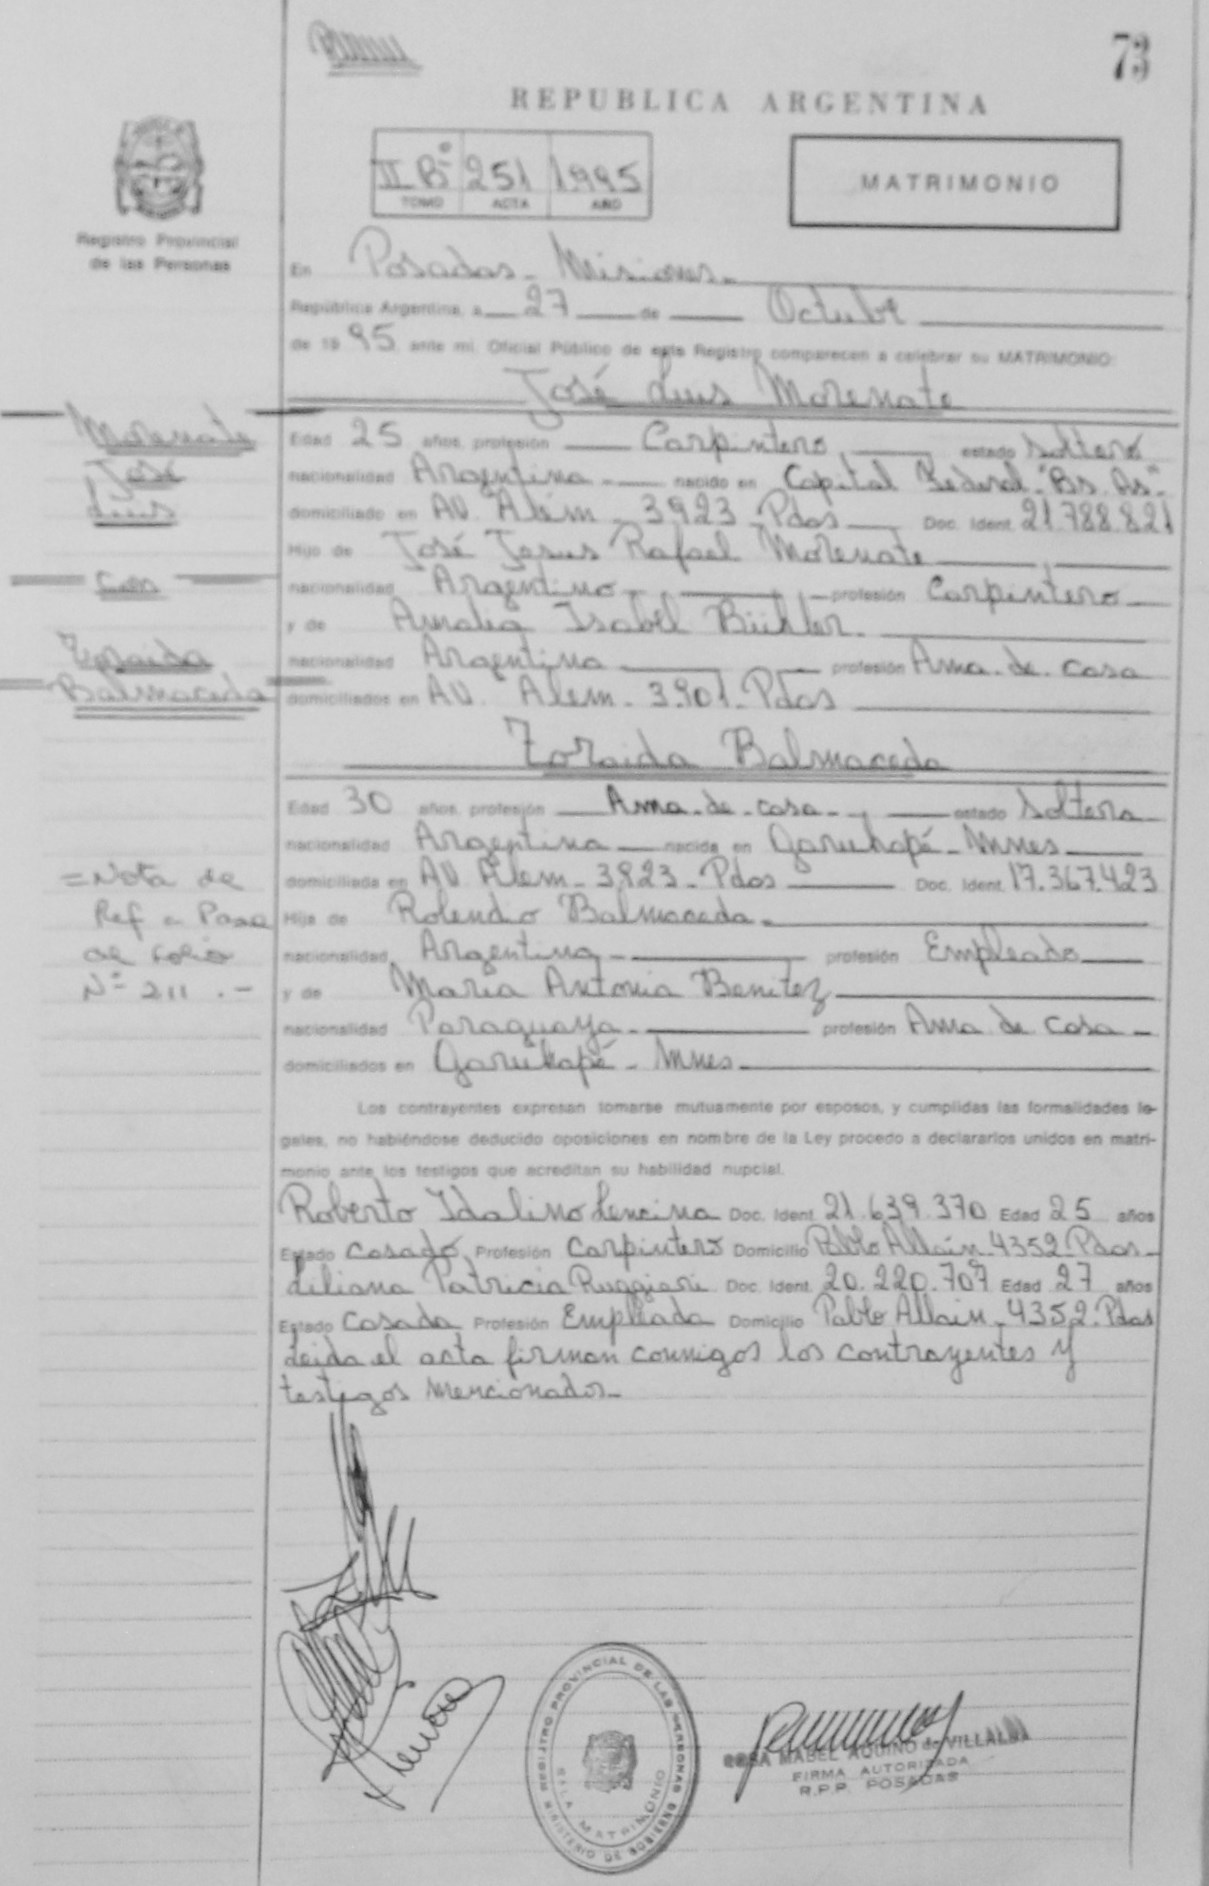 73
REPUBLICA ARGENTINA
II Bº 251 1995
TOMO ACTA AÑO
MATRIMONIO
Registro Provincial
de las Personas
En Posadas - Misiones -
República Argentina, a 27 de Octubre
de 19 95 ante mí, Oficial Público de este Registro comparecen a celebrar su MATRIMONIO:
José Luis Morenate
Morenate
José
Luis
Con
Zoraida
Balmaceda
Edad 25 años, profesión Carpintero, estado Soltero
nacionalidad Argentina - nacido en Capital Federal "Bs. As."
domiciliado en AV. Alem - 3923 - Pdas Doc. Ident. 21.788.821
Hijo de José Jesus Rafael Morenate
nacionalidad Argentino profesión Carpintero
y de Amalia Isabel Bühler.
nacionalidad Argentina profesión Ama. de. casa
domiciliados en AV. Alem - 3.901 - Pdas
Zoraida Balmaceda
Edad 30 años, profesión Ama - de - casa -, estado Soltera
nacionalidad Argentina nacida en Garuhapé - Mnes
domiciliada en AV. Alem - 3923 - Pdas Doc. Ident. 17.367.423
Hija de Rolendo Balmaceda.
nacionalidad Argentina - profesión Empleado
y de Maria Antonia Benitez
nacionalidad Paraguaya - profesión Ama de casa -
domiciliados en Garuhapé - Mnes
=Nota de
Ref a Pase
de Folio
Nº 211 .-
Los contrayentes expresan tomarse mutuamente por esposos, y cumplidas las formalidades le-
gales, no habiéndose deducido oposiciones en nombre de la Ley procedo a declararlos unidos en matri-
monio ante los testigos que acreditan su habilidad nupcial.
Roberto Idalino Lencina Doc. Ident. 21.639.370 Edad 25 años
Estado Casado Profesión Carpintero Domicilio Pablo Allain 4352 Pdas -
Liliana Patricia Ruggieri Doc. Ident. 20.220.707 Edad 27 años
Estado Casada Profesión Empleada Domicilio Pablo Allain - 4352. Pdas
Leida el acta firman conmigos los contrayentes y
testigos mencionados -
REGISTRO PROVINCIAL DE LAS PERSONAS
MINISTERIO DE GOBIERNO
SALA MATRIMONIO
ROSA MABEL AQUINO de VILLALBA
FIRMA AUTORIZADA
R.P.P. POSADAS